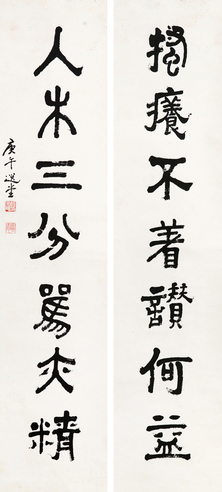 搔癢不着讚何益
入木三分罵亦精
庚午選堂